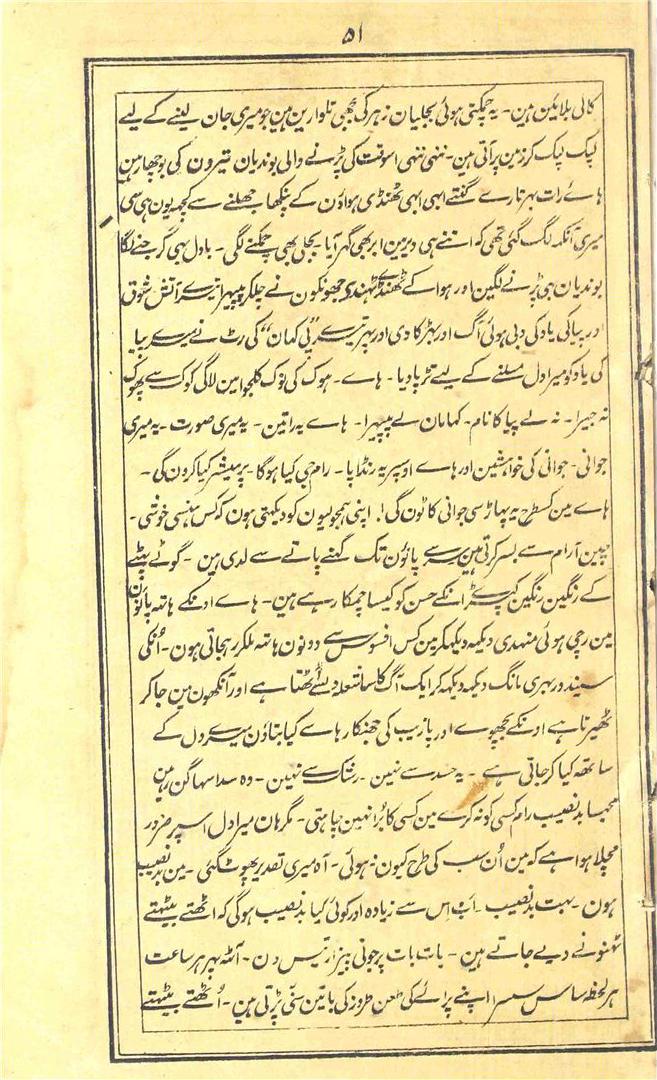 ۵۱
کالی بلائین ہین۔ یہ چمکتی ہوئی بجلیان زہر کی بجھی تلوارین ہین جو میری جان لینے کے لیے
لپک لپک کر زمین پر آتی ہین۔ ننھی ننھی اسوقت کی پڑنے والی بوندیان تیرون کی بوچھار ہین
ہائے رات بھر تارے گنتے ابھی ابھی ٹھنڈی ہواؤن کے پنکھا جھلنے سے کچھ یون ہی سی
میری آنکھ لگ گئی تھی کہ اتنے ہی دیر مین ابر بھی گھر آیا بجلی بھی چمکنے لگی۔ بادل بھی گرجنے لگا
بوندیان ہی پڑنے لگین اور ہوا کے ٹھنڈے ٹھنڈی جھونکون نے چلکر پپیہا تیرے آتش شوق
اور پیا کی یاد کی دبی ہوئی آگ اور بھڑکا دی اور پھر تیرے "پی کہان" کی رٹ نے میرے پیا
کی یاد کو میرا دل مسلنے کے لیے تڑپا دیا۔ ہاے۔ ہوک کی نوک کلجوا مین لاگی کوک سے پھوک
نہ جیرا۔ نہ لے پیا کا نام۔ کہا مان لے پپیہرا۔ ہاے یہ راتین۔ یہ میری صورت۔ یہ میری
جوانی۔ جوانی کی خواہشین اور ہاے اوسپر یہ رنڈاپا۔ رام جی کیا ہوگا۔ پرمیشر کیا کرون گی۔
ہاے مین کسطرح یہ پہاڑ سی جوانی کاٹون گی! اپنی ہمجولیون کو دیکھتی ہون کہ کس ہنسی خوشی۔
چین آرام سے بسر کرتی ہین سر سے پاؤن تک گہنے پاتے سے لدی ہین۔ گوٹے پٹھے
کے رنگین رنگین کپڑے انکے حسن کو کیسا چمکا رہے ہین۔ ہاے اونکے ہاتھ پاؤن
مین رچی ہوئی منہدی دیکھ دیکھکر مین کس افسوس سے دونون ہاتھ ملکر رہجاتی ہون۔ اُنکی
سیندور بھری مانگ دیکھ دیکھ کر ایک آگ کا سا شعلہ دل سے اُٹھتا ہے اور آنکھون مین جا کر
ٹھیرتا ہے اونکے بچھوے اور پازیب کی جھنکار ہاے کیا بتاؤن میرے دل کے
ساتھ کیا کر جاتی ہے۔ یہ حسد سے نہین۔ رشک سے نہین۔ وہ سدا سہاگن رہین
مجھسا بد نصیب رام کسی کو نہ کرے مین کسی کا بُرا نہین چاہتی۔ مگر ہان میرا دل اسپر ضرور
مچلا ہوا ہے کہ مین اُن سب کی طرح کیون نہ ہوئی۔ آہ میری تقدیر پھوٹ گئی۔ مین بد نصیب
ہون۔ بہت بد نصیب۔ اب اِس سے زیادہ اور کوئی کیا بد نصیب ہوگی کہ اٹھتے بیٹھتے
ٹھنونے دیے جاتے ہین۔ بات بات پر جوتی بیزار تیس دن۔ آٹھ پہر ہر ساعت
ہر لحظہ ساس سسر اپنے پرائے کی طعن طروز کی باتین سنی پڑتی ہین۔ اُٹھتے بیٹھتے